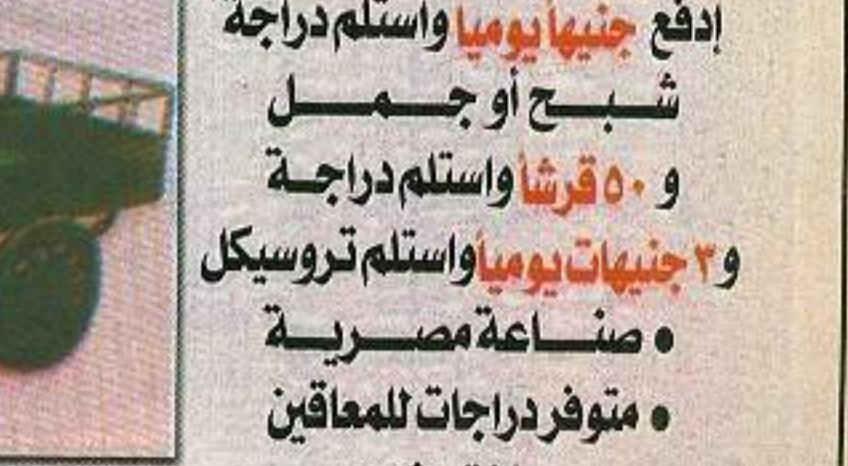 إدفع جنيهاً يومياً واستلم دراجة
شبح أو جمل
و ٥٠ قرشاً واستلم دراجة
و ٣ جنيهات يومياً واستلم تروسيكل
• صناعة مصرية
• متوفر دراجات للمعاقين